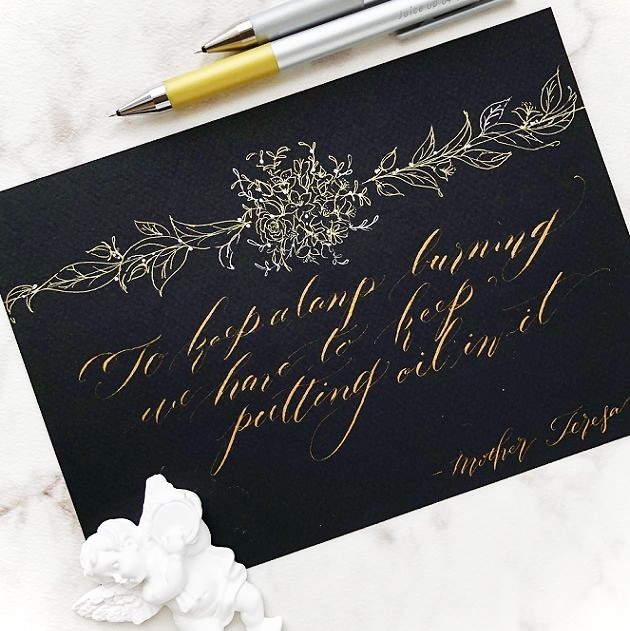 Juice up 04
To keep a lamp burning
we have to keep
putting oil in it
- Mother Teresa